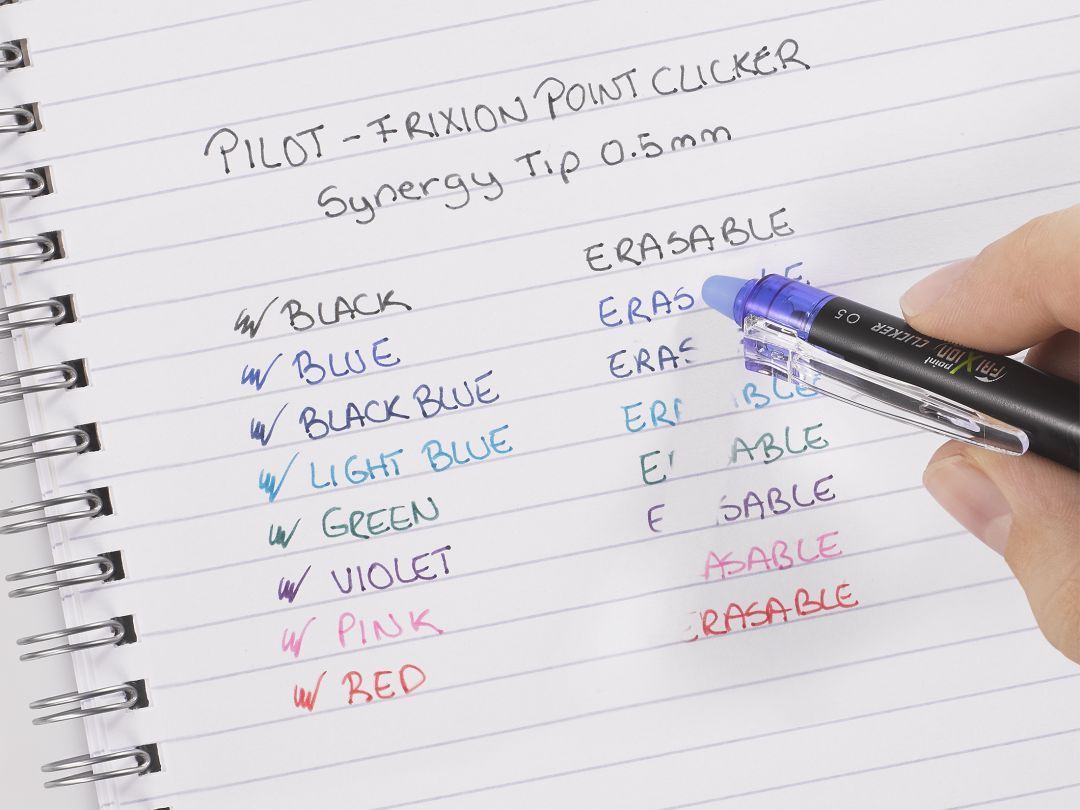 PILOT - FRIXION POINT CLICKER
Synergy Tip 0.5mm
ERASABLE
BLACK
ERAS LE
BLUE
ERAS
BLACK BLUE
ER BLE
LIGHT BLUE
E ABLE
GREEN
E SABLE
VIOLET
ASABLE
PINK
ERASABLE
RED
FRIXION point CLICKER 0.5